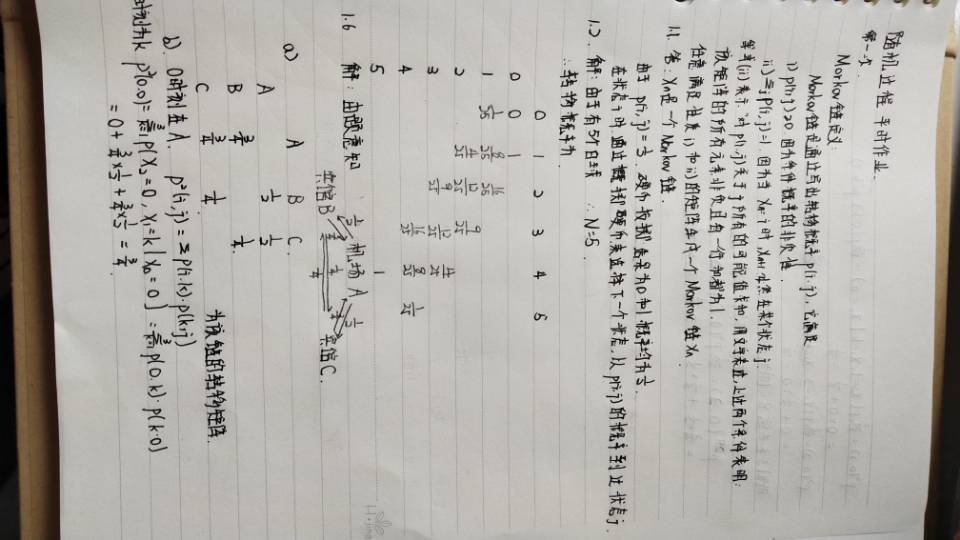 随机过程 平时作业.
第一次
Markov链定义:
Markov链是通过写出转移概率 p(i,j), 它满足
i) p(i,j)≥0. 因为条件概率的非负性.
ii) Σj p(i,j)=1. 因为当 Xn=i 时, Xn+1 必然在某个状态 j.
等式(ii)表示对 p(i,j)关于 j 所有的可能值求和, 用文字表述, 上述两个条件表明:
该矩阵的所有元素非负且每一行和都为1.
任意满足性质i) 与ii)的矩阵生成一个Markov链Xn.
1.1 答: Xn是一个Markov链.
由于 p(i,j)=½. 硬币投掷结果为0和1概率均为½.
在状态i时,通过投掷硬币来选择下一个状态, 以p(i,j)的概率到达状态j.
1.2. 解: 由于有5个白球 ∴ N=5.
∴ 转移概率为
0 1 2 3 4 5
0 0 1
1 1/25 8/25 16/25
2 4/25 12/25 9/25
3 9/25 12/25 4/25
4 16/25 8/25 1/25
5 1
1.6 解: 由题意知
宾馆B ½ 机场A ½ 宾馆C.
¾ ¾
¼
a) A B C.
A ½ ½
B ¾ ¼
C ¾ ¼
为该链的转移矩阵.
b). 0时刻在A. p²(i,j)=Σ p(i,k)·p(k,j)
时刻为k p²(0,0)=Σ p(X₂=0, X₁=k | X₀=0) = Σ p(0,k)·p(k,0)
= 0 + ¾×½ + ¾×½ = ¾